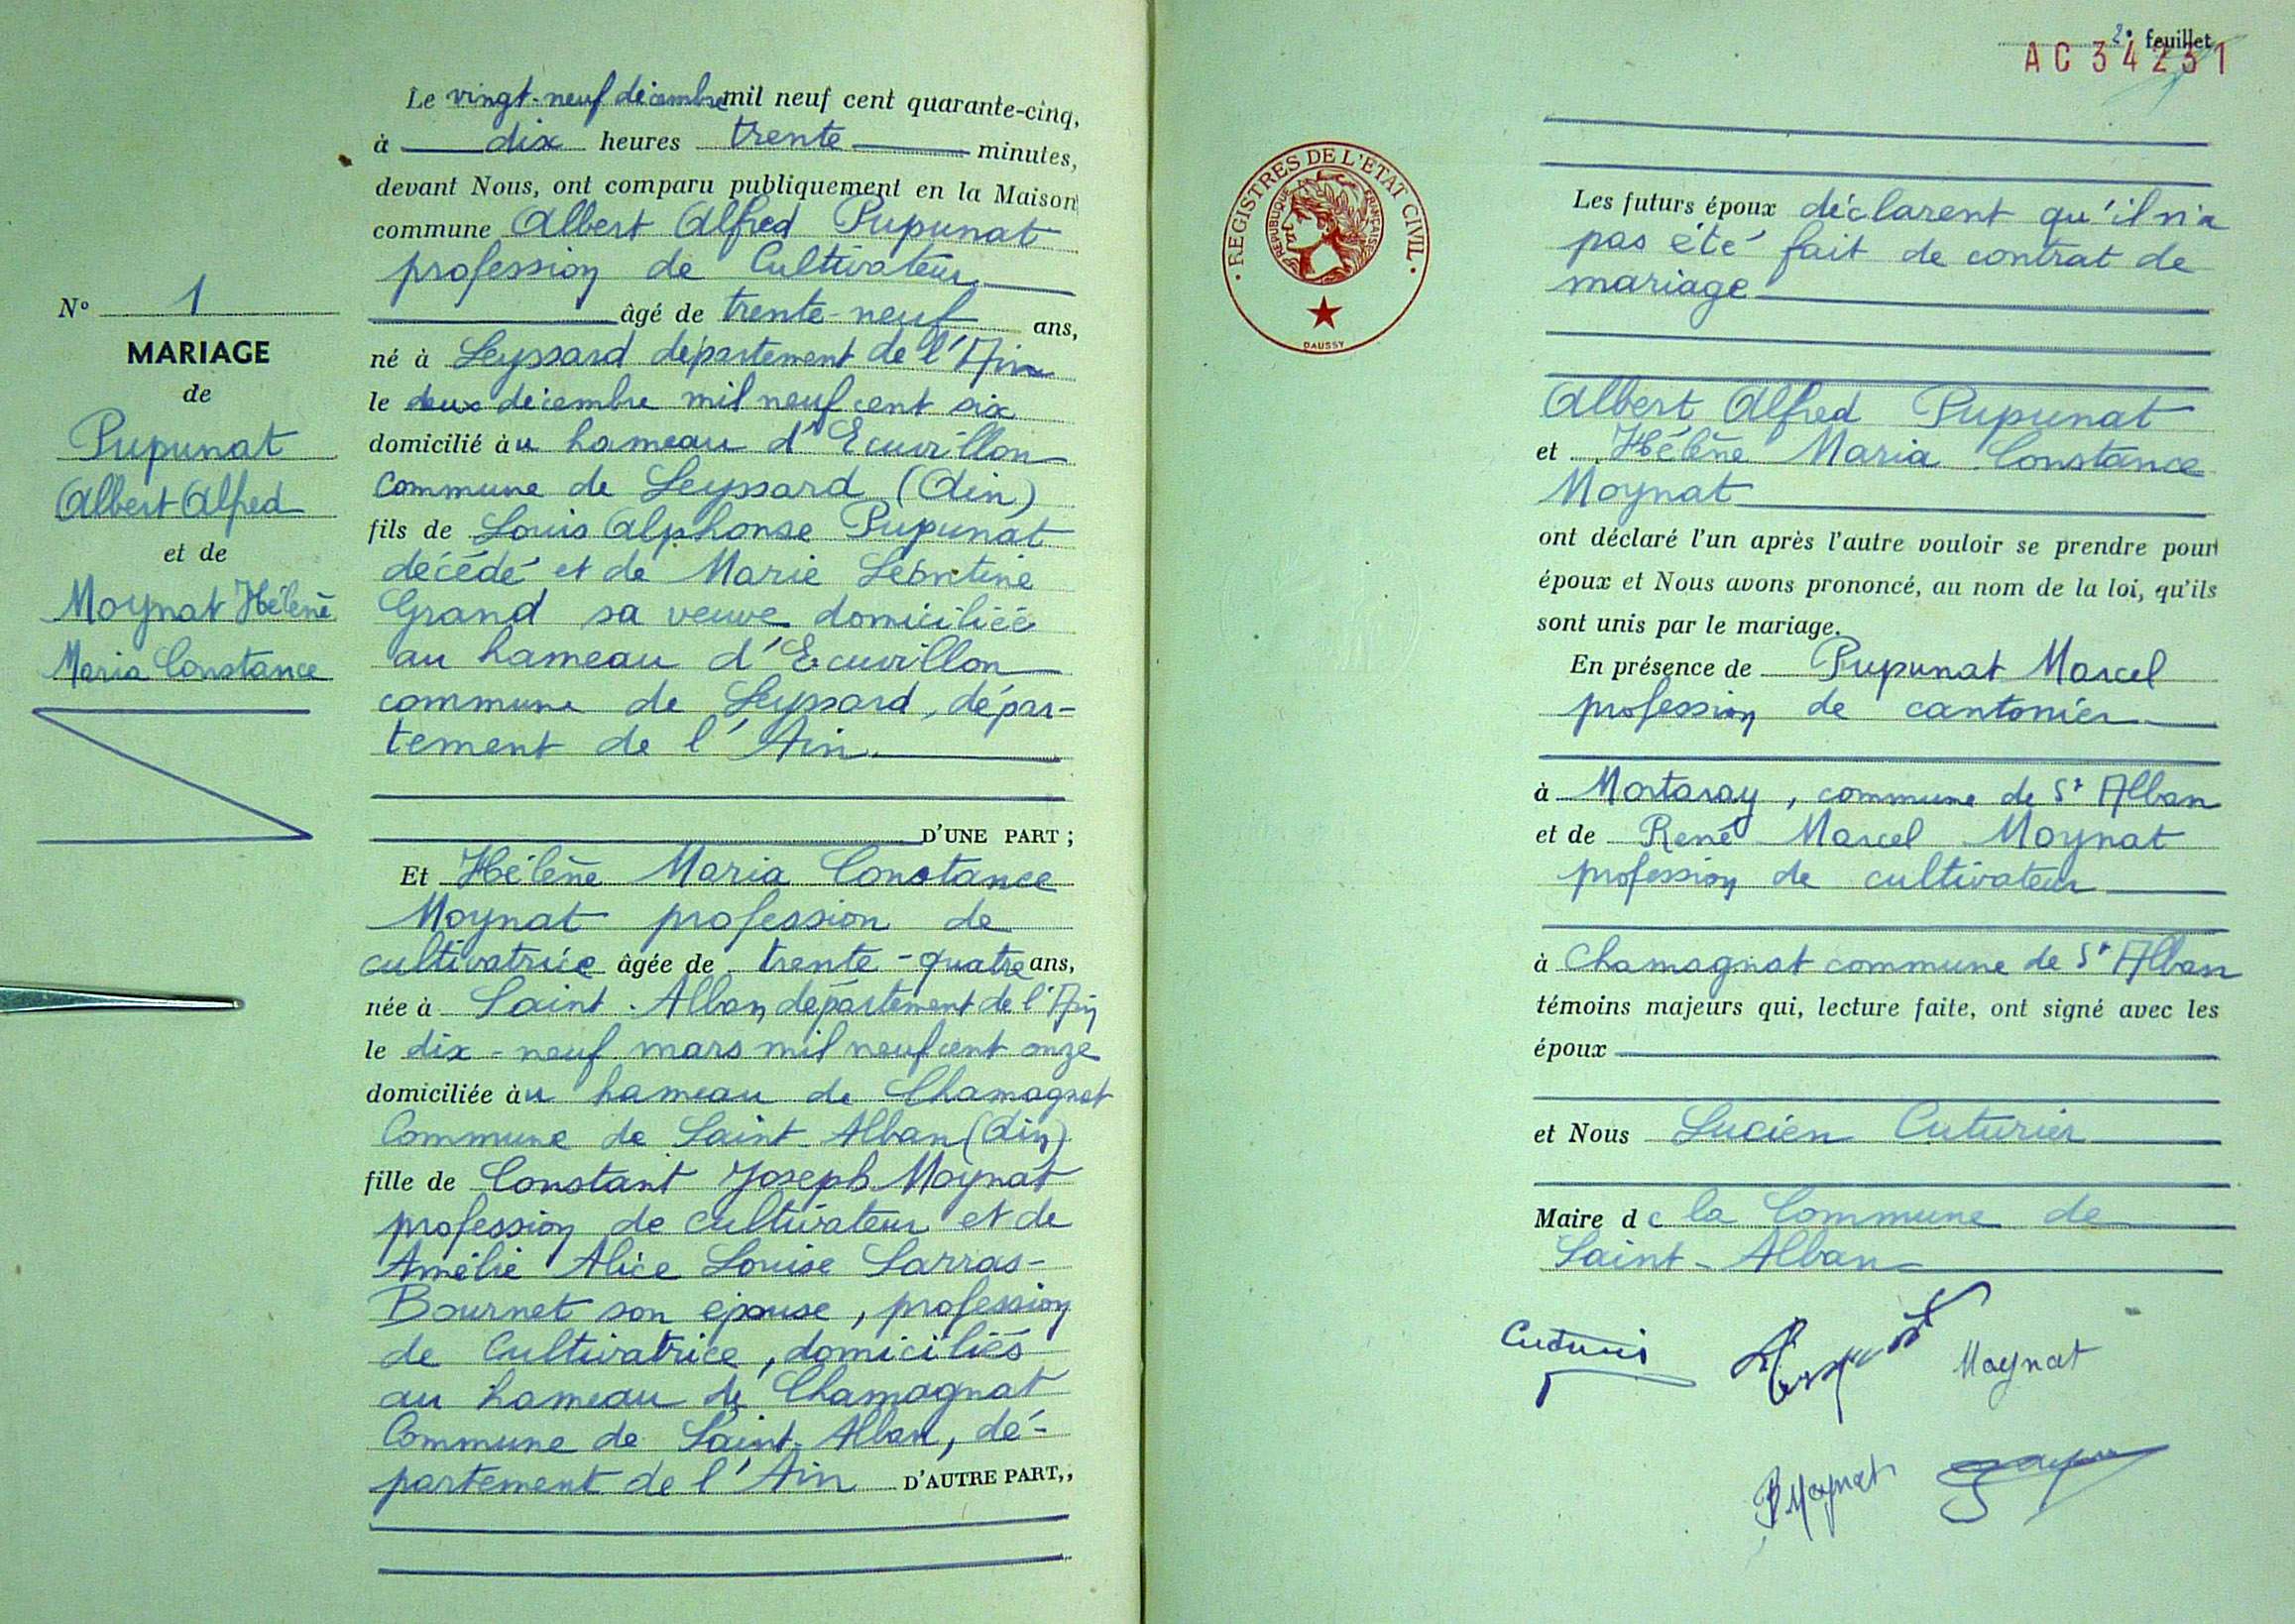 Le vingt-neuf décembre mil neuf cent quarante-cinq,
à dix heures trente minutes,
devant Nous, ont comparu publiquement en la Maison
commune Albert Alfred Pupunat
profession de Cultivateur
âgé de trente-neuf ans,
né à Leyssard département de l'Ain
le deux décembre mil neuf cent six
domicilié àu hameau d'Ecuvillon
commune de Leyssard (Ain)
fils de Louis Alphonse Pupunat
décédé et de Marie Léontine
Grand sa veuve domiciliée
au hameau d'Ecuvillon
commune de Leyssard, dépar-
tement de l'Ain.
D'UNE PART ;
Et Hélène Maria Constance
Moynat profession de
cultivatrice âgée de trente-quatre ans,
née à Saint-Alban département de l'Ain
le dix-neuf mars mil neuf cent onze
domiciliée àu hameau de Chamagnat
Commune de Saint-Alban (Ain)
fille de Constant Joseph Moynat
profession de cultivateur et de
Amélie Alice Louise Sarras-
Bournet son épouse, profession
de Cultivatrice, domiciliés
au hameau de Chamagnat
Commune de Saint-Alban, dé-
partement de l'Ain D'AUTRE PART,,
N° 1
MARIAGE
de
Pupunat
Albert Alfred
et de
Moynat Hélène
Maria Constance
2e feuillet
AC 34231
REGISTRES DE L'ETAT CIVIL
REPUBLIQUE FRANÇAISE
DAUSSY
Les futurs époux déclarent qu'il n'a
pas été fait de contrat de
mariage
Albert Alfred Pupunat
et Hélène Maria Constance
Moynat
ont déclaré l'un après l'autre vouloir se prendre pour
époux et Nous avons prononcé, au nom de la loi, qu'ils
sont unis par le mariage.
En présence de Pupunat Marcel
profession de cantonier
à Mortaray, commune de St Alban
et de René Marcel Moynat
profession de cultivateur
à Chamagnat commune de St Alban
témoins majeurs qui, lecture faite, ont signé avec les
époux
et Nous Lucien Cuturier
Maire de la Commune de
Saint-Alban
Moynat
R Moynat